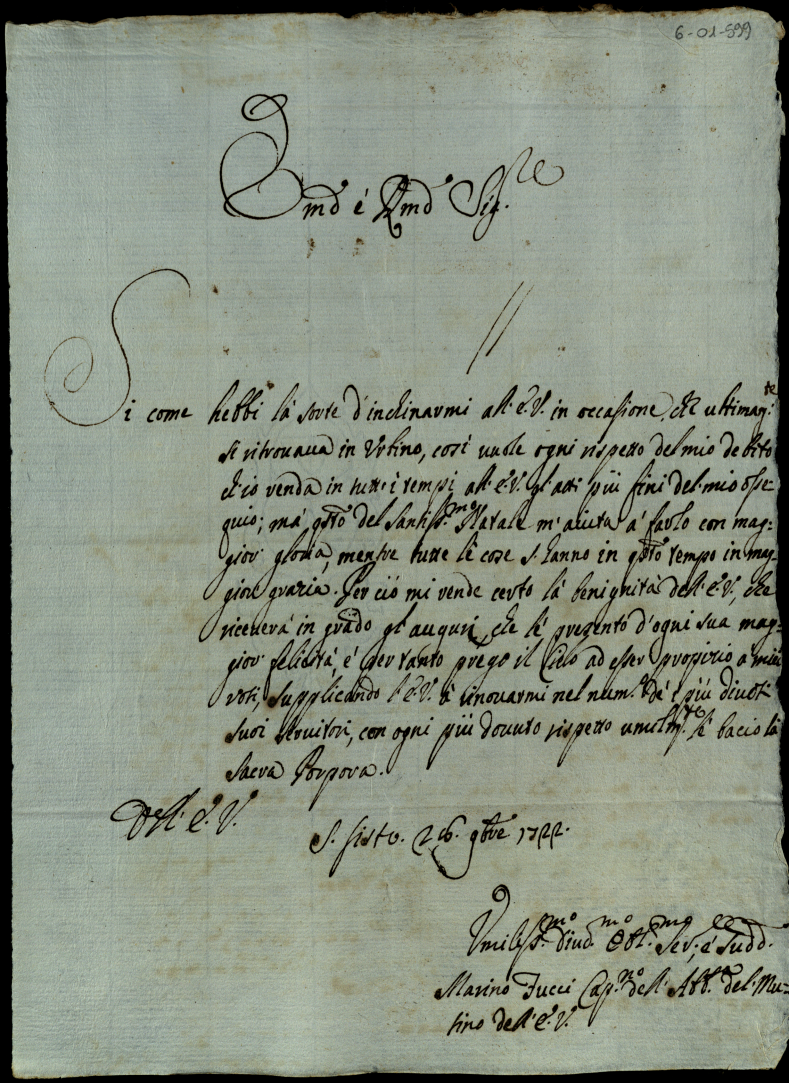 6-01-599
Em.o é R.mo Sig.re
Si come hebbi la sorte d'inclinarmi all'E.V. in occasione, che ultimam.te
si ritrouaua in Vrbino, così uuole ogni rispetto del mio debito
ch'io renda in tutti i tempi all'E.V. gl'atti più fini del mio osse-
quio; má q.sto del Santiss.mo Natale m'aiuta á farlo con mag-
gior gloria, mentre tutte lé cose s'hanno in q.sto tempo in mag-
gior grazia. Per ció mi rende certo lá benignitá dell'E.V., che
riceuerá in grado gl'augurj, che lé prezento d'ogni sua mag-
gior felicitá, é per tanto prego il Cielo ad esser propizio a' miei
voti, supplicando l'E.V. á
nel num.o dé i più diuoti
suoi seruitori, con ogni più douuto rispetto umilm.te lé bacio lá
Sacra Porpora.
Dell'E.V.
S. Sisto. 26. 9bre 1722.
Vmiliss.mo Diu.mo Obl.mo Ser.re é Sudd.
Marino Fucci Cap.no dell'Abb.a del Mu-
tino dell'E.V.